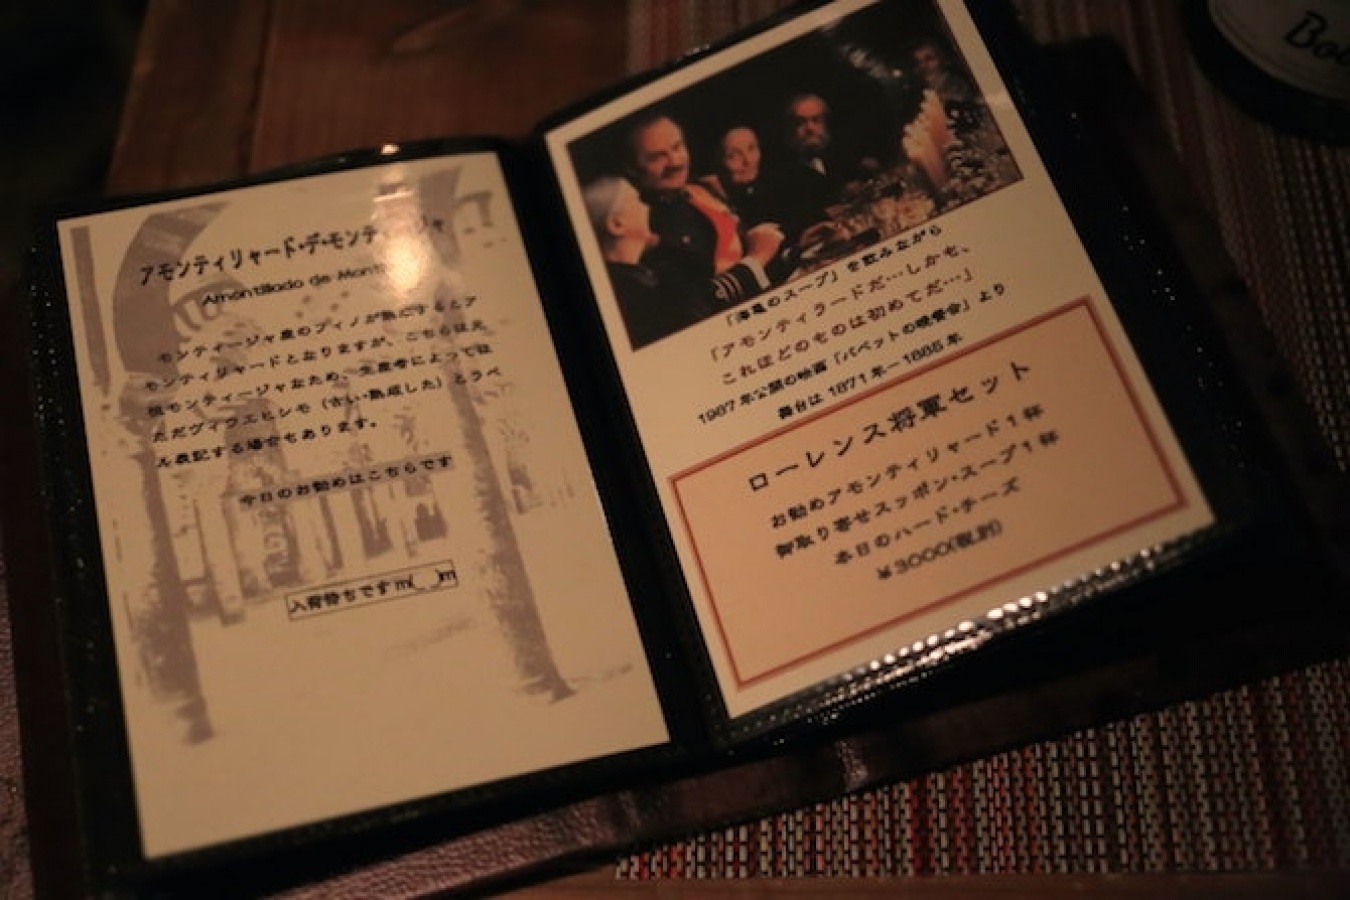 アモンティリャード・デ・モンティージャ
Amontillado de Mont
モンティージャ産のフィノが熟成するとア
モンティリャードとなりますが、こちらは元
祖モンティージャなため、生産者によっては
ただヴィウエヒシモ（古い・熟成した）とラベ
ル表記する場合もあります。
今日のお勧めはこちらです
入荷待ちですm(_ _)m
「海亀のスープ」を飲みながら
「アモンティラードだ…しかも、
これほどのものは初めてだ…」
1987年公開の映画「バベットの晩餐会」より
舞台は1871年－1885年
ローレンス将軍セット
お勧めアモンティリャード1杯
御取り寄せスッポン・スープ1杯
本日のハード・チーズ
¥3000(税別)
Bo